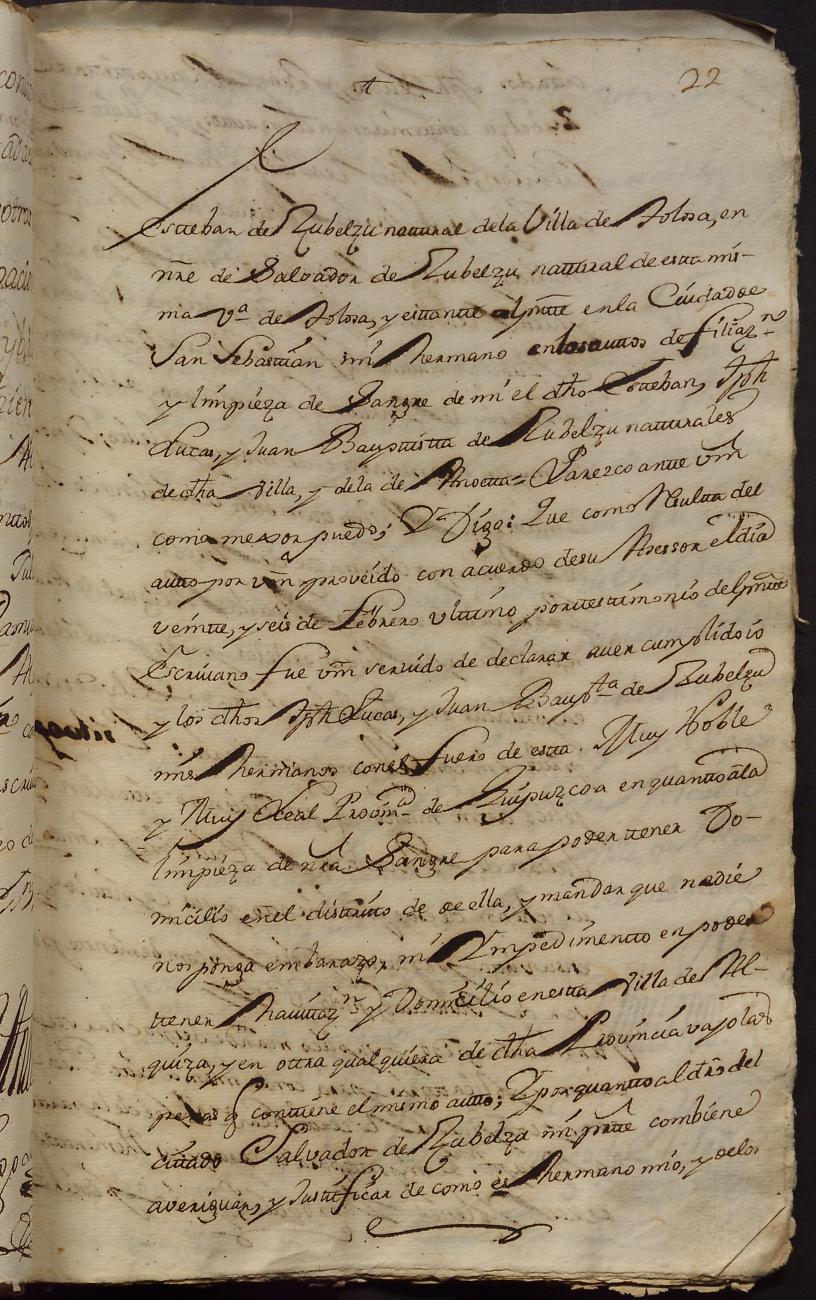 22
Esteban de Zubelzu natural dela Villa de Tolosa, en
nre de Salvador de Zubelzu natural de esta mis-
ma va de Tolosa, y estante al pnte en la Ciudad de
San Sebastian mi hermano en los auttos de filiazn
y limpieza de Sangre de mi el dho Esteban, Jph
Lucas, y Juan Bauptista de Zubelzu naturales
de dha villa, y dela de Anoeta = Parezco ante vm
como mexor puedo; Y Digo: Que como Resulta del
auto por vm proveido con acuerdo de su Assessor el dia
veinte, y seis de Febrero ultimo por testimonio del pnte
Escrivano fue vm servido de declarar aver cumplido io
y los dhos Jph Lucas, y Juan Baupta de Zubelzu
mis hermanos con el fuero de esta Muy Noble
y Muy Leal Provinca de Guipuzcoa en quanto a la
limpieza de nra Sangre para poder tener Do-
micilio en el distrito de de ella, y mandar que nadie
nos ponga embarazo, ni Ympedimento en poder
tener havitazn y Domicilio en esta Villa de Al-
quiza, y en otra qualquiera de dha Provincia vajo las
penas q contiene el mismo auto; Y por quanto al dro del
citado Salvador de Zubelzu mi parte combiene
averiguar, y Justificar de como es hermano mio, y de los